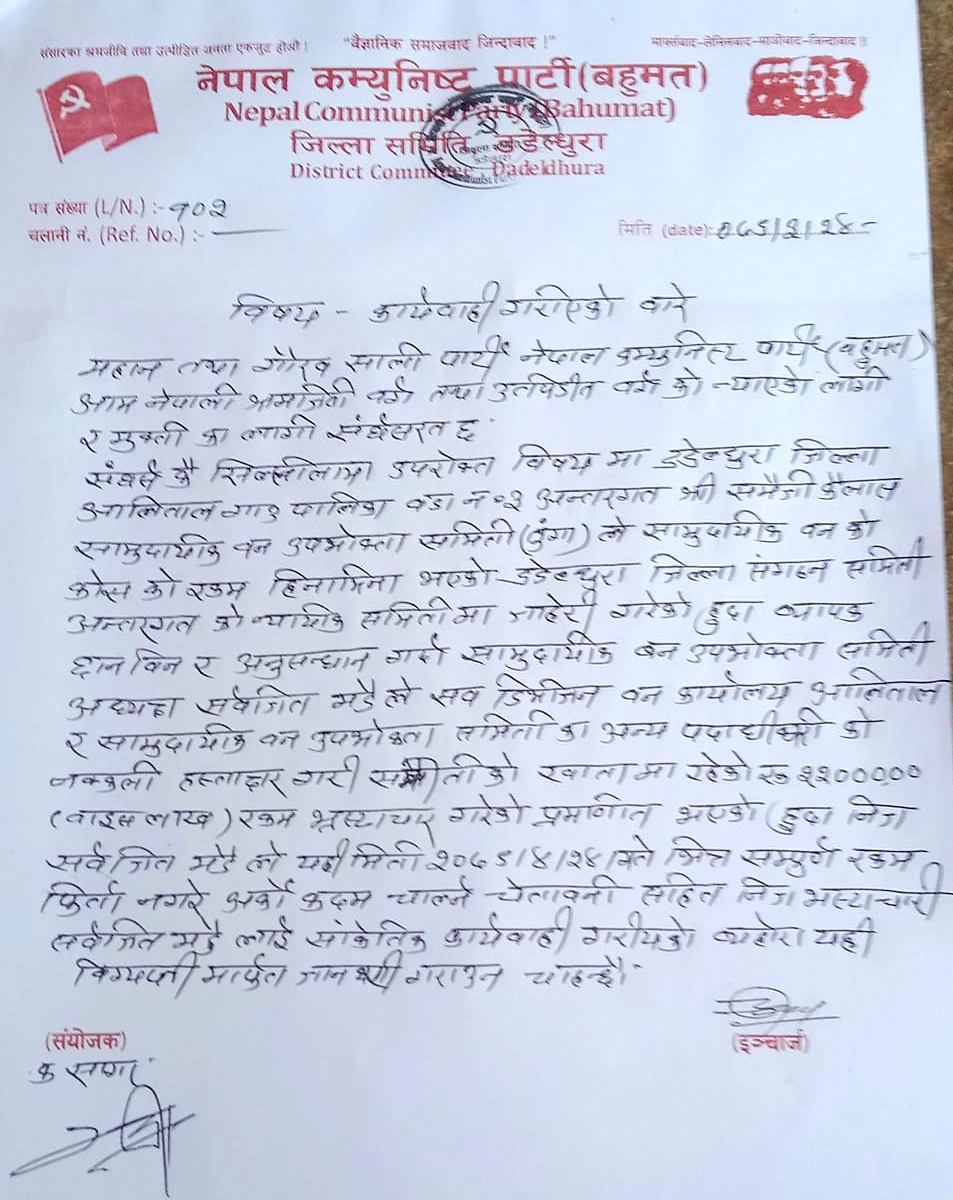 संसारका श्रमजीवि तथा उत्पीडित जनता एकजुट होऔ! "वैज्ञानिक समाजवाद जिन्दावाद !" मार्क्सवाद-लेनिनवाद-माओवाद-जिन्दावाद !!
नेपाल कम्युनिष्ट पार्टी(बहुमत)
Nepal Communist Party (Bahumat)
जिल्ला समिति डडेल्धुरा
District Committee Dadeldhura
पत्र संख्या (L/N.) :- १०२
चलानी नं. (Ref. No.) :-
मिति (date):
विषय - कार्यवाही गरीएको बारे
महान तथा गौरव साली पार्टी नेपाल कम्युनिस्ट पार्टी (बहुमत)
आम नेपाली श्रमजिवी वर्ग तथा उतपिडीत वर्ग को न्याएको लागी
र मुक्ती का लागी संर्घसरत छ
संघर्ष कै सिलसीलामा उपरोक्त विषय मा डडेल्धुरा जिल्ला
आलिताल गाउ पालिका वडा न ०३ अन्तरगत श्री समैजी कैलास
सामुदायीक वन उपभोक्ता समिती (दुंगा) ले सामुदायीक वन को
कोस को रकम हिनामिना भएको डडेल्धुरा जिल्ला संगठन समिती
अन्तरगत को न्यायीक समिती मा जाहेरी गरेको हुदा व्यापक
छानविन र अनुसन्धान गर्दा सामुदायीक बन उपभोक्ता समिती
अध्यक्ष सर्वजित भडै ले सव डिभीजन वन कार्यालय आलिताल
र सामुदायीक वन उपभोक्ता समिती का अन्य पदाधीकारी को
नक्कली हस्ताक्षर गरी समीतीको खाता मा रहेको रु २२०००००
(वाइस लाख) रकम भ्रस्टाचार गरेको प्रमाणीत भएको हुदा निज
सर्वजित भडै ले यही मिती २०८१/४/२४ गते भित्र सम्पुर्ण रकम
फिर्ता नगरे अर्को कदम चाल्ने चेतावनी सहित निज भस्टाचारी
सर्वजित भडै लाई सांकेतिक कार्यवाही गरीयको व्यहोरा यही
विग्यप्ती मार्फत जानकारी गराउन चाहन्छौ
(संयोजक)
(इञ्चार्ज)